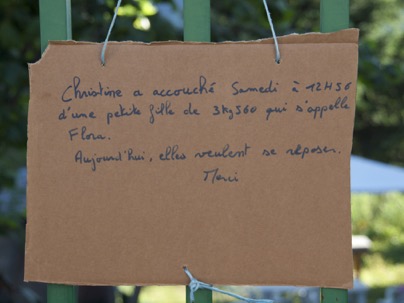 Christine a accouché Samedi à 12H30
d'une petite fille de 3kg560 qui s'appelle
Flora.
Aujourd'hui, elles veulent se reposer.
Merci